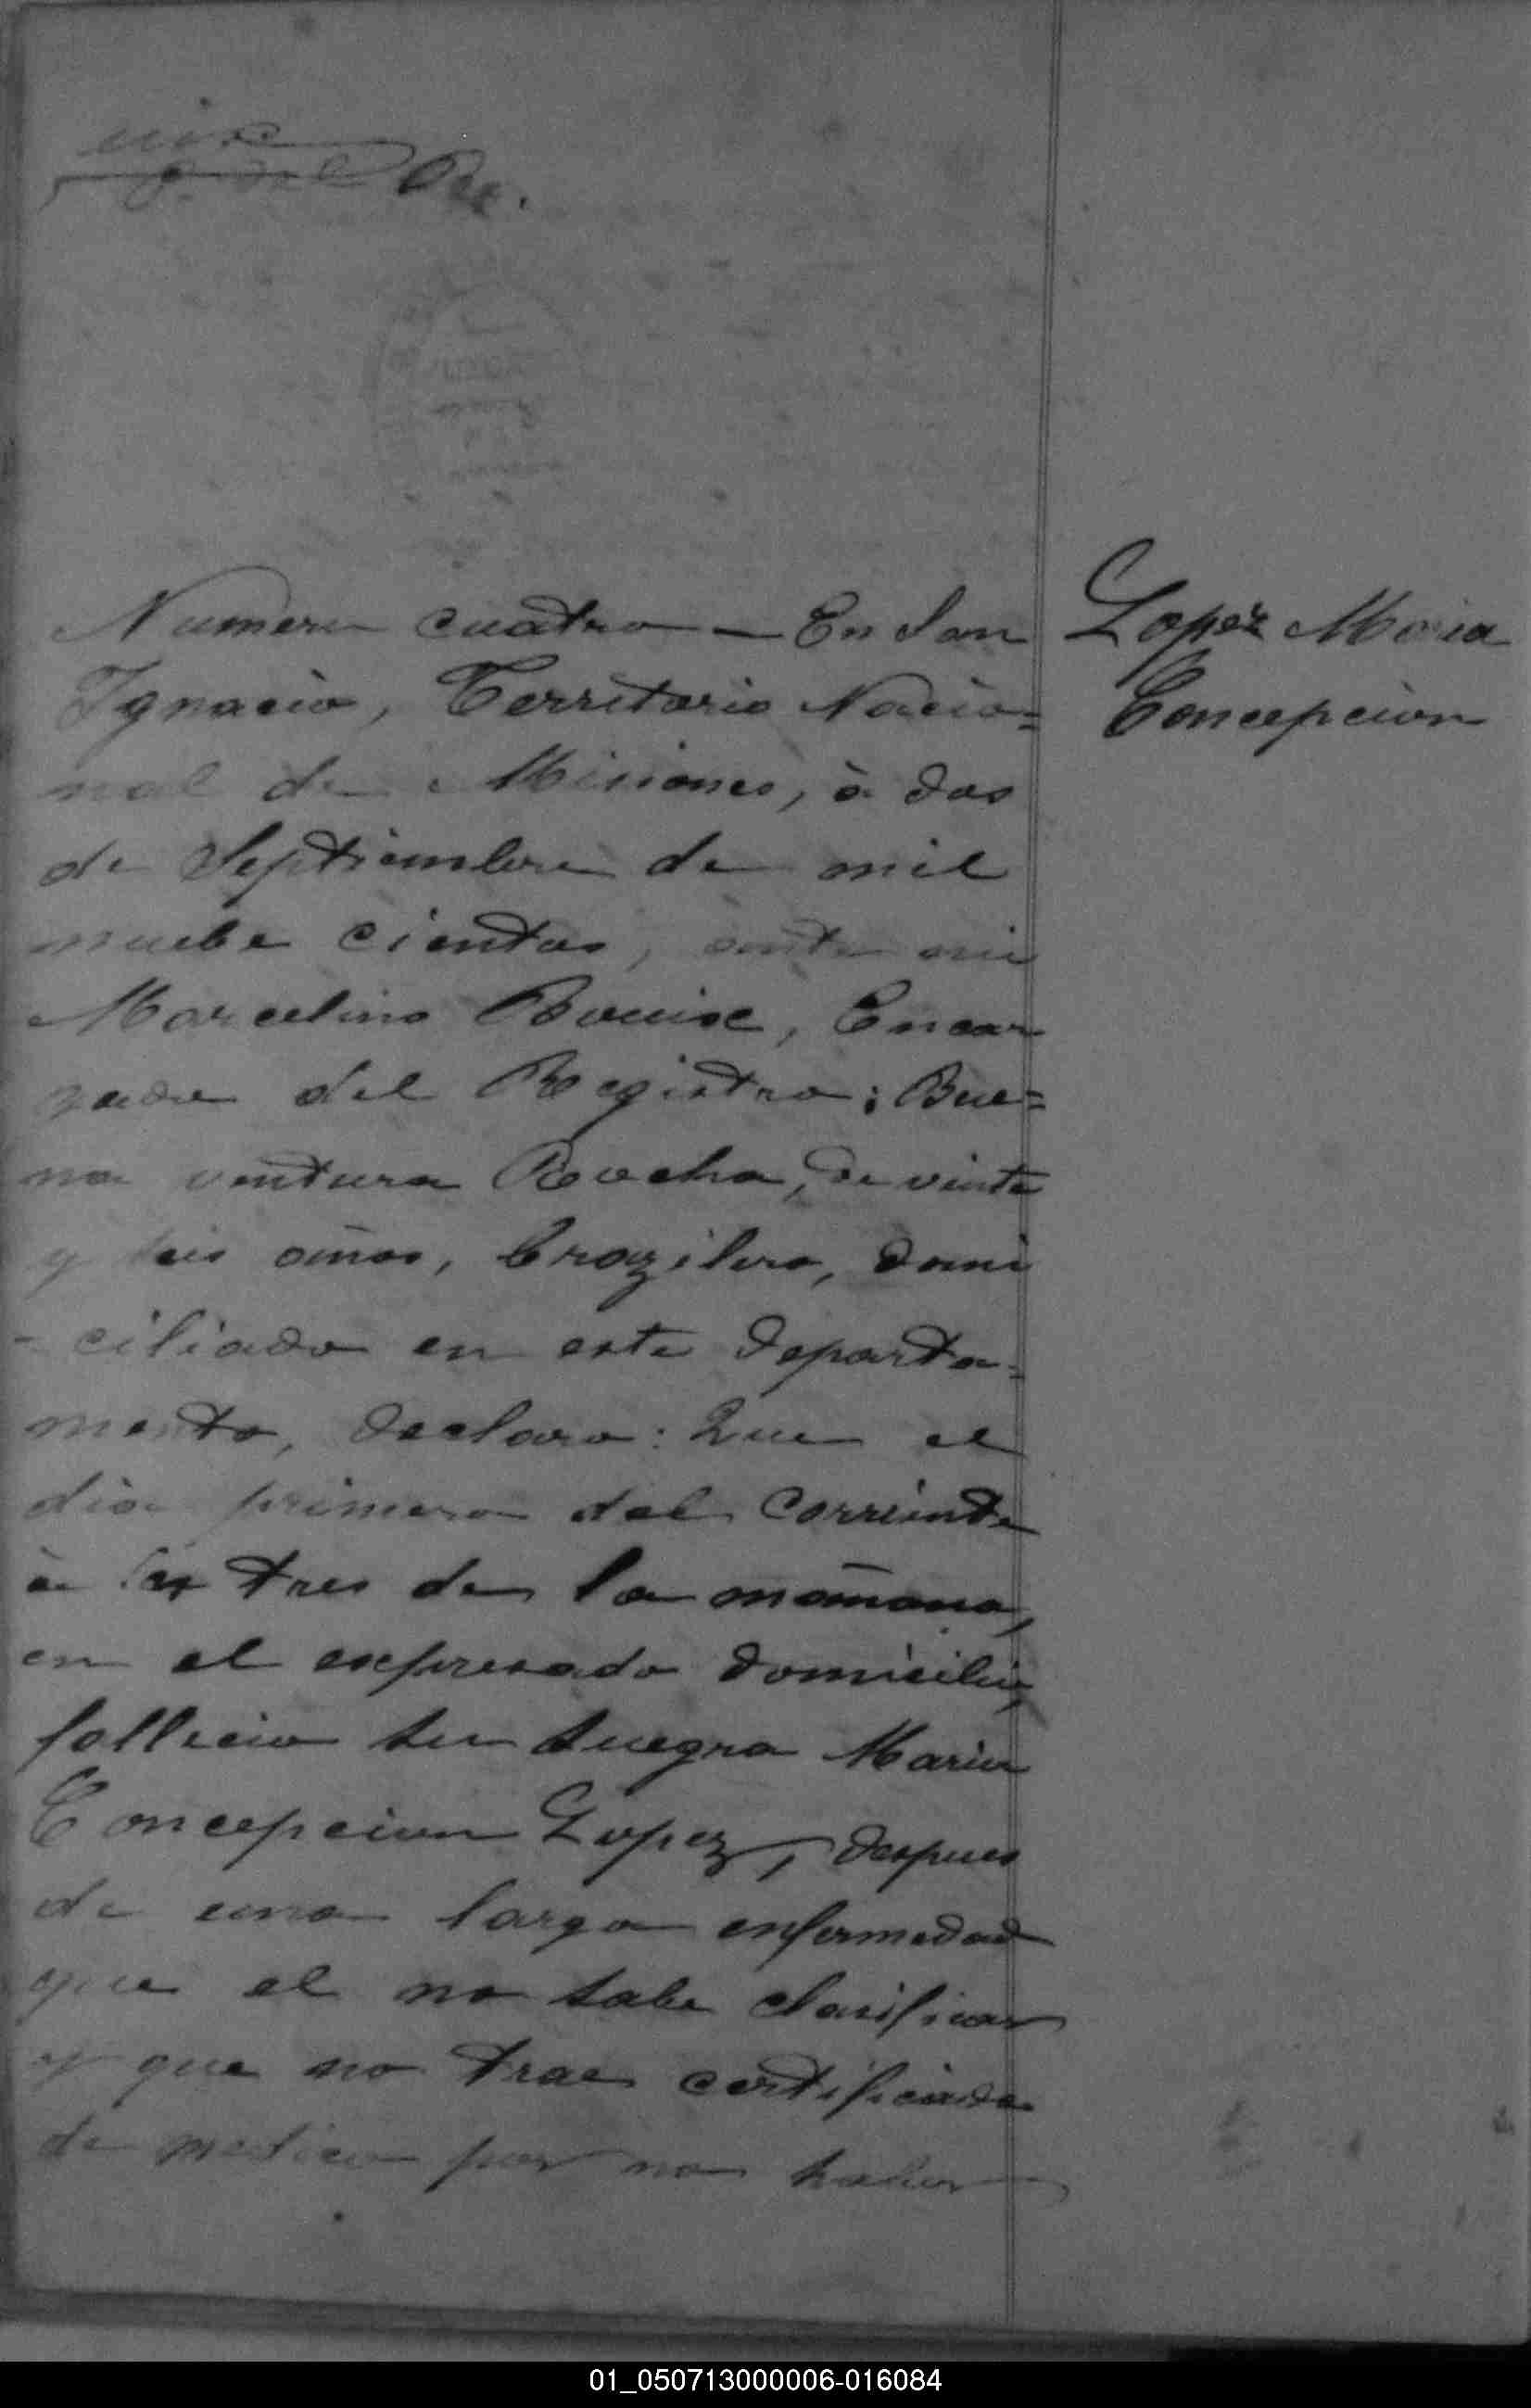 Numero cuatro — En San
Ignacio, Territorio Nacio=
nal de Misiones, à dos
de Septiembre de mil
nuebe cientos, ante mi
Marcelino Bouix, Encar
gado del Registro; Bue=
na ventura Rocha, de vinte
y seis años, brazilero, domi
-ciliado en este departa=
mento, declaro: Que el
dia primero del corriente
à las tres de la mañana,
en el expresado domicilio,
fallecio su suegra Maria
Concepcion Lopez, despues
de una larga enfermedad
que el no sabe clasificar
y que no trae certificado
de medico por no haber
Lopez Maria
Concepcion
01_050713000006-016084